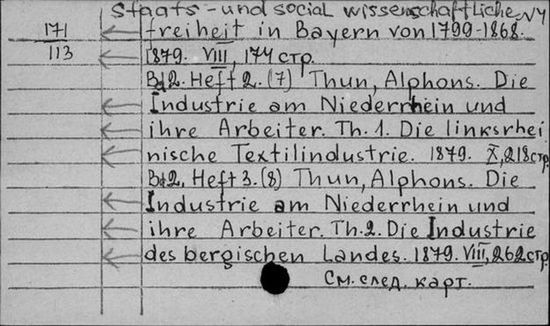 Staats- und social wissenschaftliche NY
171 freiheit in Bayern von 1799-1868.
113 1879. VIII, 174 стр.
Bd 2. Heft 2. (7) Thun, Alphons. Die
Industrie am Niederrhein und
ihre Arbeiter. Th. 1. Die linksrhei
nische Textilindustrie. 1879. X, 218 стр.
Bd 2. Heft 3. (8) Thun, Alphons. Die
Industrie am Niederrhein und
ihre Arbeiter. Th. 2. Die Industrie
des bergischen Landes. 1879. VIII, 262 стр
См. след. карт.